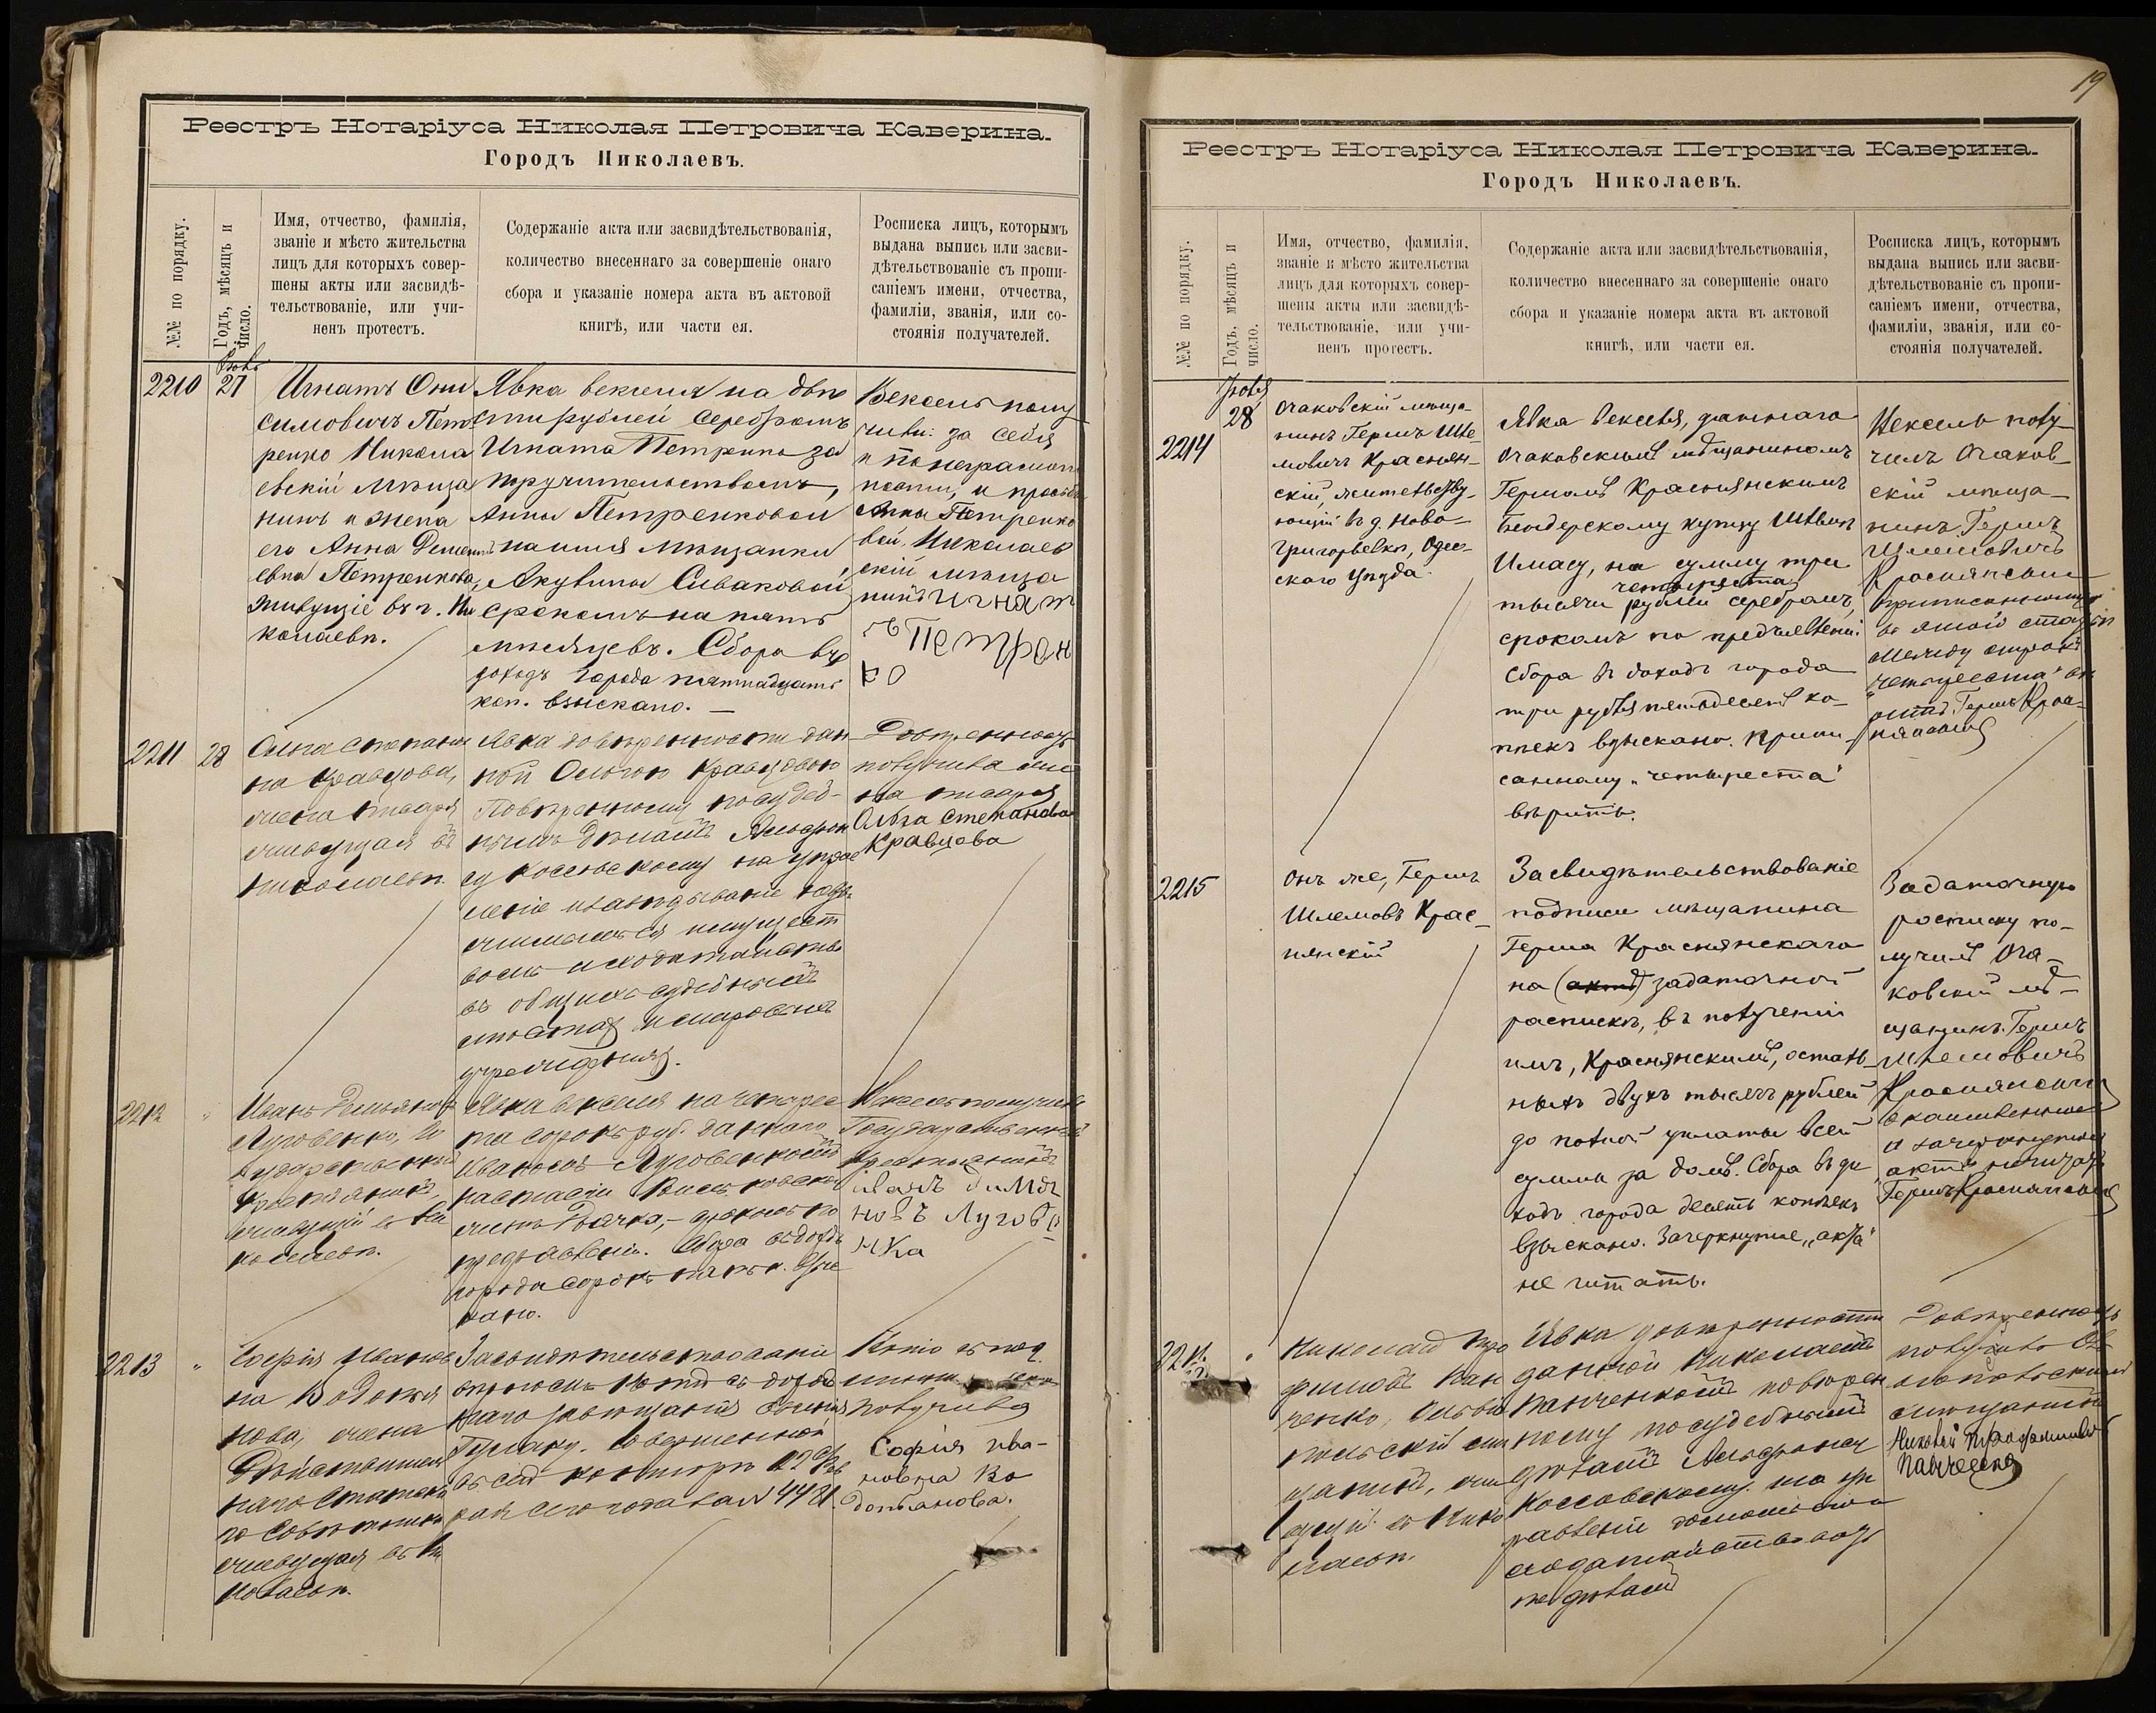 Реестръ Нотаріуса Николая Петровича Каверина.
Городъ Николаевъ.
№№ по порядку.
Годъ, мѣсяцъ и
число.
Имя, отчество, фамилія,
званіе и мѣсто жительства
лицъ для которыхъ совер-
шены акты или засвидѣ-
тельствованіе, или учи-
ненъ протестъ.
Содержаніе акта или засвидѣтельствованія,
количество внесеннаго за совершеніе онаго
сбора и указаніе номера акта въ актовой
книгѣ, или части ея.
Росписка лицъ, которымъ
выдана выпись или засви-
дѣтельствованіе съ пропи-
саніемъ имени, отчества,
фамиліи, званія, или со-
стоянія получателей.
2210
27
Игнатъ Они
симовичъ Пет
ренко Никола
евскій мѣща
нинъ и жена
его Анна
евна Петренкова,
живущіе въ г. Ни
колаевѣ.
Явка векселя на двѣ
сти рублей серебромъ
Игната Петренко за
поручительствомъ,
Анны Петренковой
на имя мѣщанки
Акулины Сиваковой,
срокомъ на пять
мѣсяцевъ. Сбора въ
доходъ города пятнадцать
коп. взыскано. —
Вексель полу
чилъ: за себя
и по неграмот
ности, и просьбѣ
Анны Петренко
вой, Николаев
скій мѣща
нинъ Игнат
ъ Петрен
ко
2211
28
Ольга Степанов
на Кравцова,
жена
живущая въ
Николаевѣ.
Явка довѣренности дан
ной Ольгою Кравцовою
Повѣренному по судеб-
нымъ дѣламъ Альфон
су Коссовскому на управ
леніе и завѣдываніе
имущест
вомъ и ходатайство
въ общихъ судебныхъ
мѣстахъ и мировыхъ
учрежденіяхъ.
Довѣренность
получила же
на
Ольга Степановна
Кравцова
2212
"
Иванъ Демьянов
Луговенко, Го
сударственный
крестьянинъ,
живущій въ Ни
колаевѣ.
Явка векселя на четырес
та сорокъ руб. даннаго
Иваномъ Луговенкомъ
срокомъ по
предъявленіи. Сбора въ доходъ
города сорокъ пять к. взыс
кано.
Вексель получилъ
Государственный
крестьянинъ
Иванъ димъя
новъ Лугове
нка
2213
"
Софія Иванов
на Водопья
нова, жена
Дѣйствитель
наго Статска
го Совѣтника
живущая въ Ни
колаевѣ.
Засвидѣтельствованіе
копіи съ духов
наго завѣщанія
совершенной
въ сей конторѣ 22 Фев
раля сего года за № 4421.
Копію съ под
линнымъ
получила
Софія Ива-
новна Во
допьянова.
19
Реестръ Нотаріуса Николая Петровича Каверина.
Городъ Николаевъ.
№№ по порядку.
Годъ, мѣсяцъ и
число.
Имя, отчество, фамилія,
званіе и мѣсто жительства
лицъ для которыхъ совер-
шены акты или засвидѣ-
тельствованіе, или учи-
ненъ протестъ.
Содержаніе акта или засвидѣтельствованія,
количество внесеннаго за совершеніе онаго
сбора и указаніе номера акта въ актовой
книгѣ, или части ея.
Росписка лицъ, которымъ
выдана выпись или засви-
дѣтельствованіе съ пропи-
саніемъ имени, отчества,
фамиліи, званія, или со-
стоянія получателей.
2214
28
Очаковскій мѣща-
нинъ Гершъ Шле-
мовичъ Краснян-
скій, жительству-
ющій въ д. Ново-
григорьевкѣ, Одес-
скаго уѣзда.
Явка векселя, даннаго
Очаковскимъ мѣщаниномъ
Гершомъ Краснянскимъ
Бендерскому купцу
Имасу, на сумму три
четыреста
тысячи рублей серебромъ,
срокомъ по предъявленіи.
Сбора въ доходъ города
три рубля пятьдесятъ ко-
пѣекъ взыскано. Припи-
санному „четыреста"
вѣрить.
Вексель полу-
чилъ Очаков-
скій мѣща-
нинъ Гершъ
Шлемовичъ
Краснянскій
приписанному
въ этой статьѣ
между строкъ
„четыреста" вѣ
рить. Гершъ Крас-
нянскій
2215
Онъ же, Гершъ
Шлемовъ Крас-
нянскій
Засвидѣтельствованіе
подписи мѣщанина
Герша Краснянскаго
на (актѣ) задаточной
роспискѣ, въ полученіи
имъ, Краснянскимъ, осталь-
ныхъ двухъ тысячъ рублей
до полной уплаты всей
суммы за домъ. Сбора въ до
ходъ города десять копѣекъ
взыскано. Зачеркнутое „актѣ"
не читать.
Задаточную
росписку по-
лучилъ Оча-
ковскій мѣ-
щанинъ Гершъ
Шлемовичъ
Краснянскій
а зачеркнутое
актѣ не читать
Гершъ Краснянскій
"
Николай Тро
фимовъ Пан
ченко,
польскій мѣ
щанинъ, жи
вущій въ Нико
лаевѣ.
Явка довѣренности
данной Николаемъ
Панченкомъ повѣрен
ному по судебнымъ
дѣламъ Альфонсу
Коссовскому на уп
равленіе домомъ и
ходатайство по
дѣламъ
Довѣренность
получилъ
мѣщанинъ
Николай Трофимовъ
Панченко